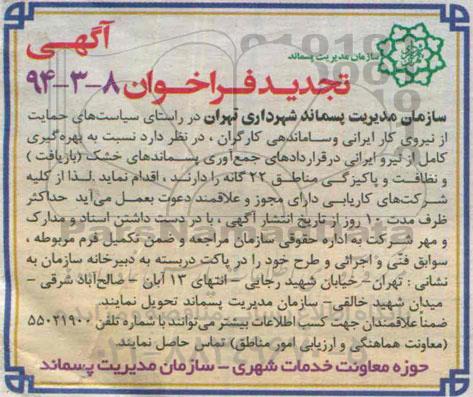 سازمان مدیریت پسماند
آگهی
تجدید فراخوان ۸-۳-۹۴
سازمان مدیریت پسماند شهرداری تهران در راستای سیاست‌های حمایت
از نیروی کار ایرانی وساماندهی کارگران ، در نظر دارد نسبت به بهره‌گیری
کامل از نیرو ایرانی درقراردادهای جمع‌آوری پسماندهای خشک (بازیافت )
و نظافت و پاکیزگی مناطق ۲۲ گانه را دارند ، اقدام نماید .لذا از کلیه
شرکت‌های کاریابی دارای مجوز و علاقمند دعوت بعمل می‌آید حداکثر
ظرف مدت ۱۰ روز از تاریخ انتشار آگهی ، با در دست داشتن اسناد و مدارک
و مهر شرکت به اداره حقوقی سازمان مراجعه و ضمن تکمیل فرم مربوطه ،
سوابق فنّی و اجرائی و طرح خود را در پاکت دربسته به دبیرخانه سازمان به
نشانی : تهران- خیابان شهید رجایی - انتهای ۱۳ آبان - صالح‌آباد شرقی -
میدان شهید خالقی- سازمان مدیریت پسماند تحویل نمایند.
ضمنا علاقمندان جهت کسب اطلاعات بیشتر می‌توانند با شماره تلفن ۵۵۰۲۱۹۰۰
(معاونت هماهنگی و ارزیابی امور مناطق) تماس حاصل نمایند.
حوزه معاونت خدمات شهری - سازمان مدیریت پسماند